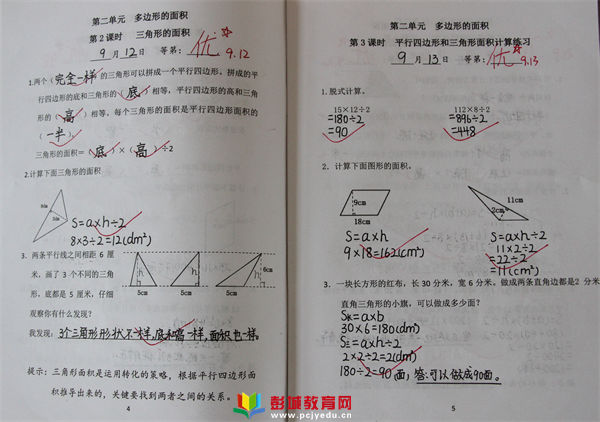 第二单元 多边形的面积
第2课时 三角形的面积
9月12日 等第：优 9.12
1.两个（完全一样）的三角形可以拼成一个平行四边形。拼成的平
行四边形的底和三角形的（底）相等，平行四边形的高和三角
形的（高）相等，每个三角形的面积是平行四边形面积的
（一半）。
三角形的面积＝（底）×（高）÷2
2.计算下面三角形的面积
S=a×h÷2
8×3÷2=12(dm²)
3. 两条平行线之间相距 6 厘
米，画了 3 个不同的三角
形，底都是 5 厘米，仔细
观察你有什么发现？
h h h 6cm
5cm 5cm 5cm
我发现：3个三角形形状不一样，底和高一样，面积也一样。
提示：三角形面积是运用转化的策略，根据平行四边形面
积推导出来的，关键要找到两者之间的关系。
4
第二单元 多边形的面积
第3课时 平行四边形和三角形面积计算练习
9月13日 等第：优 9.13
1. 脱式计算。
15×12÷2 112×8÷2
=180÷2 =896÷2
=90 =448
2. 计算下面图形的面积。
9cm 11cm
18cm 2cm
S=a×h S=a×h÷2
9×18=162(cm²) 11×2÷2
=22÷2
=11(cm²)
3. 一块长方形的红布，长 30 分米，宽 6 分米，做成两条直角边都是2 分米
直角三角形的小旗，可以做成多少面？
S长=a×b
30×6=180(dm)
S三=a×h÷2
2×2÷2=2(dm)
180÷2=90 面，答：可以做成90面。
5
彭城教育网
www.pcjyedu.cn